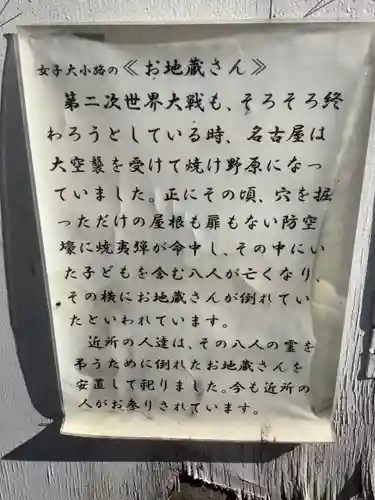 女子大小路の《お地蔵さん》
第二次世界大戦も、そろそろ終
わろうとしている時、名古屋は
大空襲を受けて焼け野原になっ
ていました。正にその頃、穴を掘
っただけの屋根も扉もない防空
壕に焼夷弾が命中し、その中にい
た子どもを含む八人が亡くなり、
その横にお地蔵さんが倒れてい
たといわれています。
近所の人達は、その八人の霊を
弔うために倒れたお地蔵さんを
安置して祀りました。今も近所の
人がお参りされています。